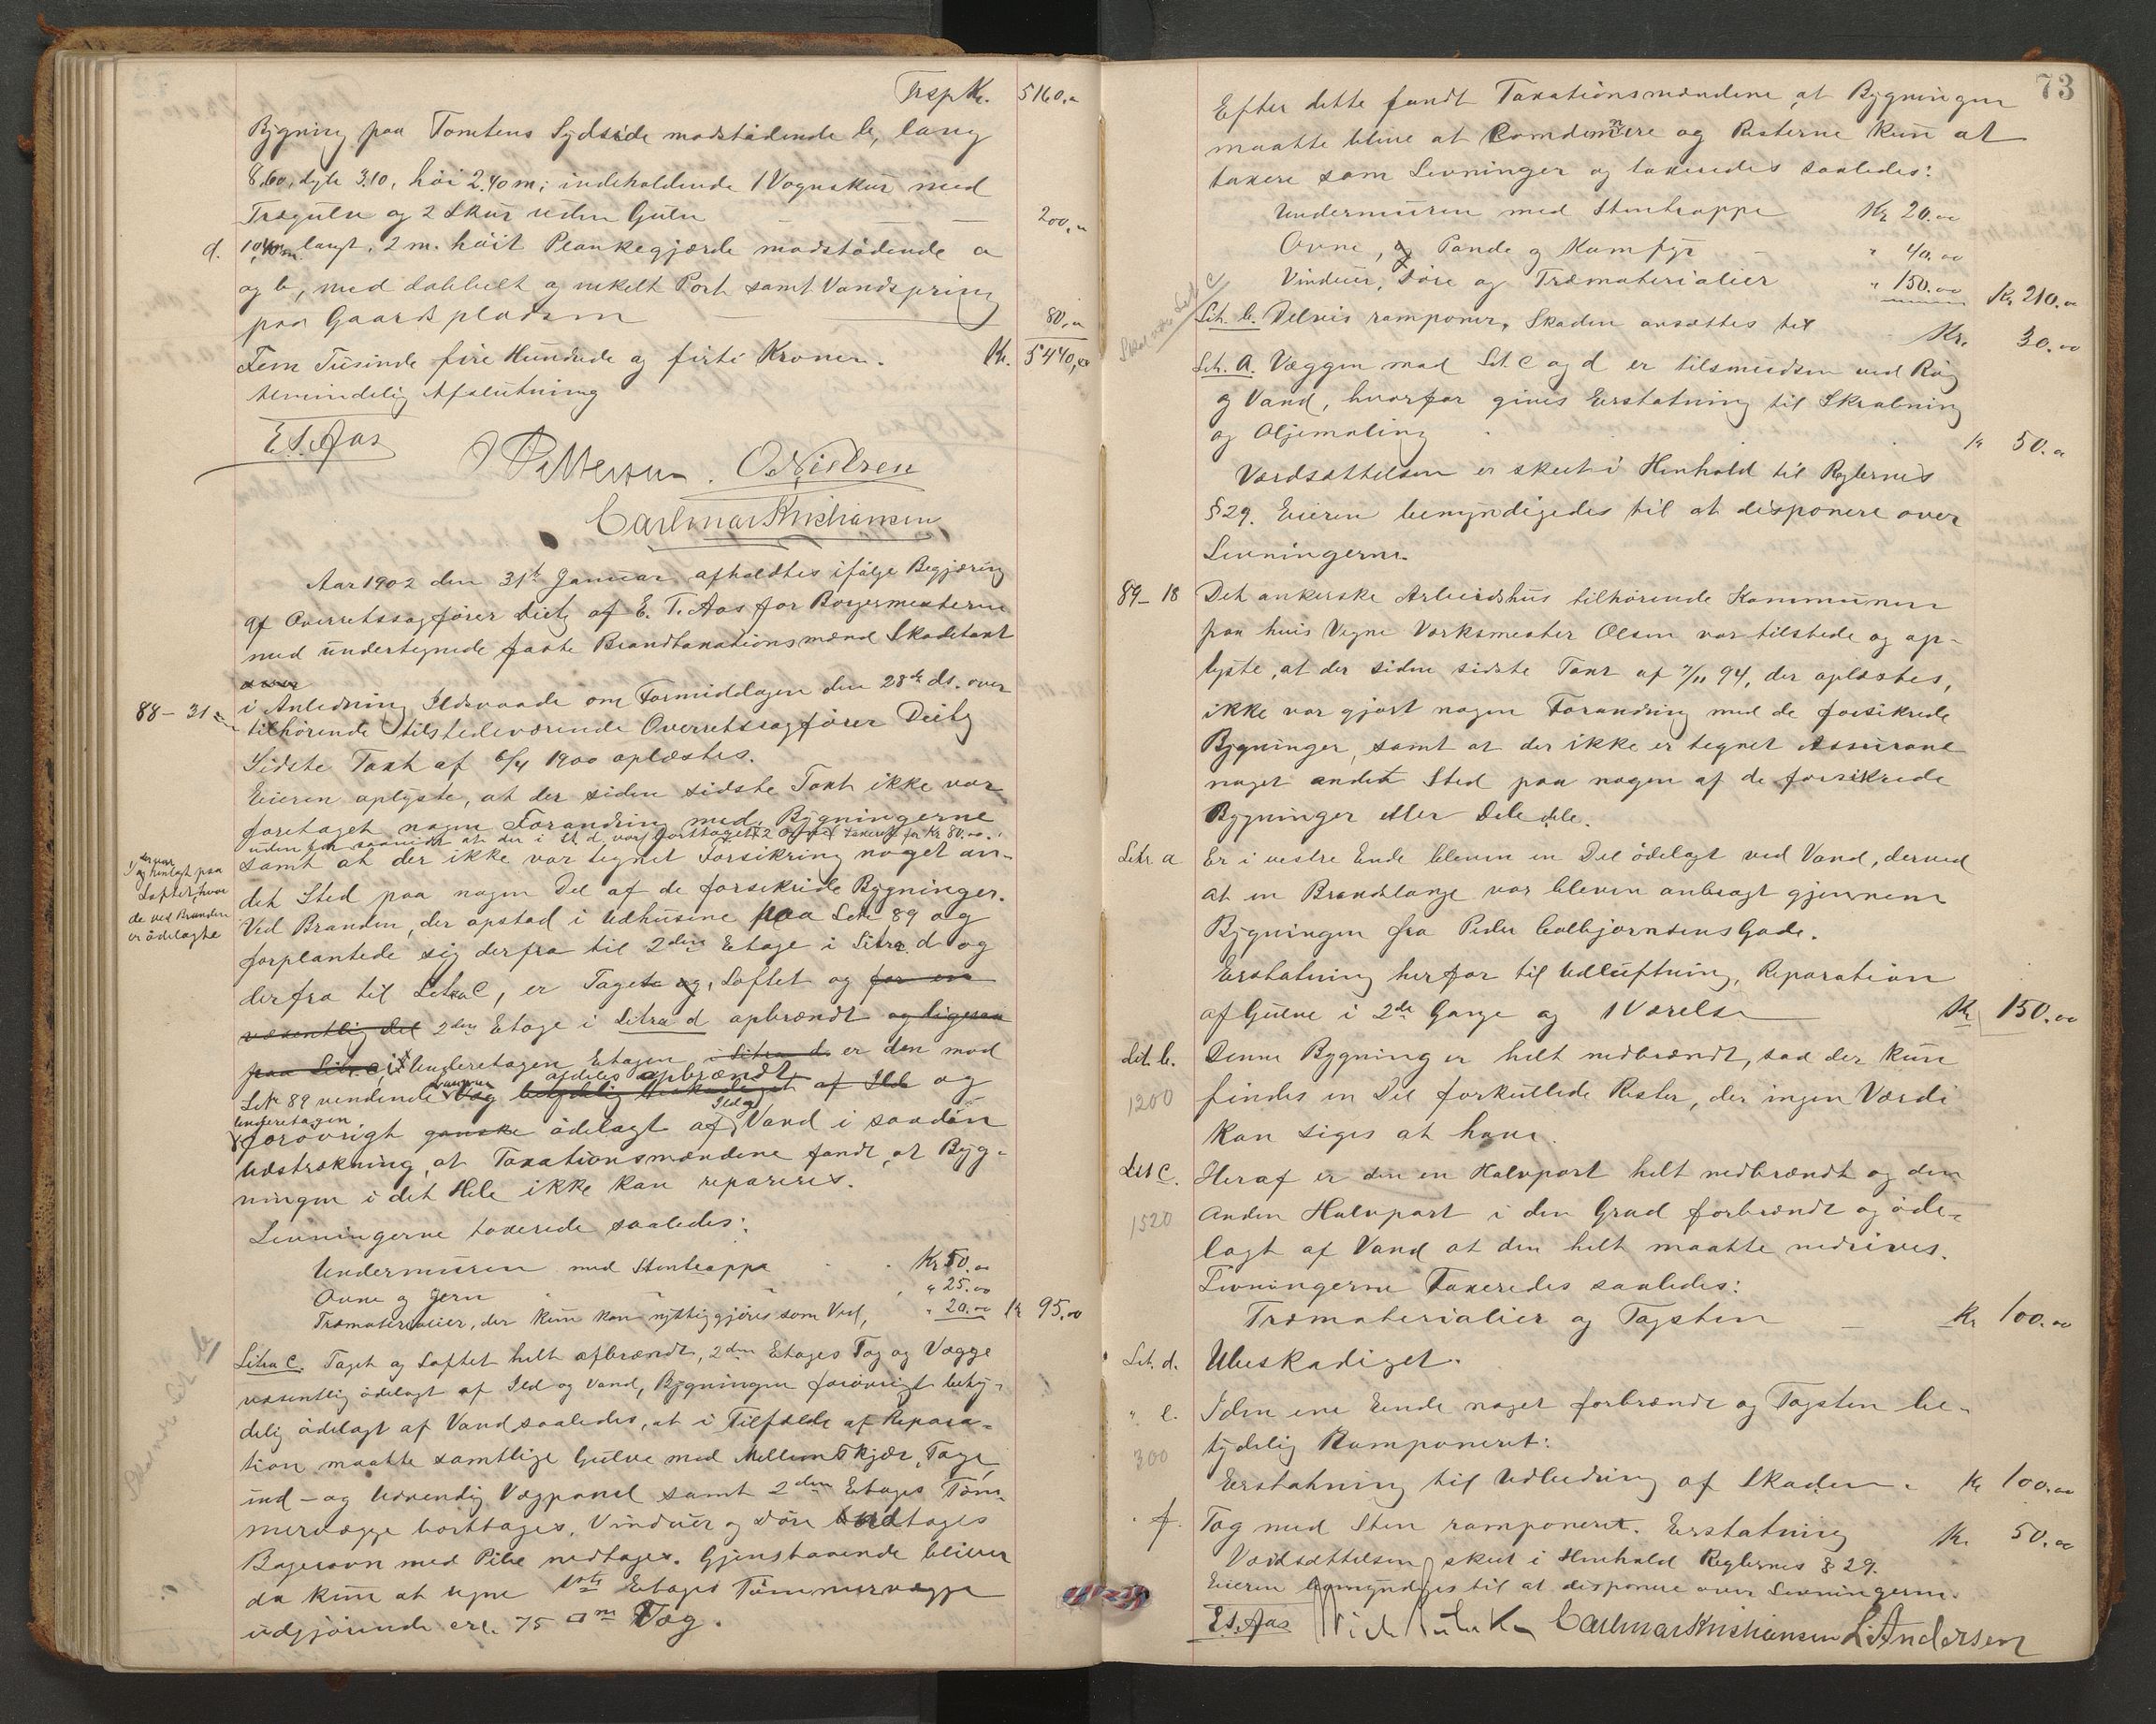 Trsp Kr. 5160,"
Bygning paa Tomtens Sydside modstødende b, lang
8,60, dyb 3.10, høi 2.40 m; indeholdende 1 Vognskur med
Trægulv og 2 Skur uden Gulv 200,"
d. 10,40 m langt, 2 m. høit Plankegjærde modstødende a
og b, med dobbelt og enkelt Port samt Vandspring
paa Gaardspladsen 80,"
Fem Tusinde fire Hundrede og firti Kroner. Kr. 5440,00
Almindelig Afslutning
E.T. Aas
Pettersen. O. Nielsen
Carlmar Kristiansen
Aar 1902 den 31te Januar afholdtes ifølge Begjæring
af Overretssagfører Dietz af E. T. Aas for Borgermesteren
med undertegnede faste Brandtaxationsmænd Skadetaxt
over
i Anledning Ildsvaade om Formiddagen den 28de ds. over
88 - 31 tilhørende tilstedeværende Overretssagfører Deitz
Sidste Taxt af 6/4 1900 oplæstes.
Eieren oplyste, at der siden sidste Taxt ikke var
foretaget nogen Forandring med Bygningerne
uden at der i Lit d. var borttaget 2 Ovne taxeret for Kr 80.00.
samt at der ikke var tegnet Forsikring noget an-
1) der var
og henlagt paa
Loftet, hvor
de ved Branden
er ødelagte
det Sted paa nogen Del af de forsikrede Bygninger.
Ved Branden, der opstod i Udhusene paa Lnr 89 og
forplantede sig derfra til 2den Etage i Litra d og
derfra til Litra C, er Taget og, Loftet og for en
væsentlig Del 2den Etage i Litra d opbrændt og ligesaa
paa Litr. c, i Underetagen Etagen i Litra d. er den mod
afdeles opbrændt
Lnr 89 vendende Væg betydelig beskadiget af Ild og
Underetagen
forøvrigt ganske ødelagt af Ild og Vand i saadan
Udstrækning, at Taxationsmændene fandt, at Byg-
ningen i det Hele ikke kan repareres.
Levningerne taxerede saaledes:
Undermuren med Stentrappe Kr 50.00
Ovne og Jern " 25.00
Træmaterialier, der kun kan nyttiggjøres som Ved, " 20.00 Kr 95,00
Litra C. Taget og Loftet helt afbrændt, 2den Etages Tag og Vægge
væsentlig ødelagt af Ild og Vand, Bygningen forøvrigt bety-
delig ødelagt af Vand saaledes, at i Tilfælde af Repara-
tion maatte samtlige Gulve med Mellemskjær, Tage,
ind- og Udvendig Vægpanel samt 2den Etages Tøm-
mervægge borttages, Vinduer og Døre borttages
Bagerovn med Pibe nedtages. Gjenstaaende bliver
da kun at regne 1ste Etages Tømmervægge
udgjørende ca. 75 □m Væg.
73
Efter dette fandt Taxationsmændene at Bygningen
maatte blive at Komdemnere og Resterne kun at
taxere som Levninger og taxeredes saaledes:
Undermuren med Stentrappe Kr 20.00
Ovne, og Pande og Komfyr " 40.00
Vinduer, Døre og Træmaterialier " 150.00 Kr 210.00
Litr. b. Delvis ramponer. Skaden ansættes til Kr. 30.00
Litr. A. Væggen mod Lit. C og d er tilsmudsen ved Røg
og Vand, hvorfor gives Erstatning til Skrabning
og Oljemaling Kr 50.00
Værdsættelsen er skeet i Henhold til Reglernes
§ 29. Eieren bemyndigedes til at disponere over
Levningerne.
89 - 18 Det ankerske Arbeidshus tilhørende Kommunen
paa hvis Vegne Værksmester Olsen var tilstede og op-
lyste, at der siden sidste Taxt af 7/11 94, der oplæstes,
ikke var gjort nogen Forandring med de forsikrede
Bygninger, samt at der ikke er tegnet Assurance
noget andet Sted paa nogen af de forsikrede
Bygninger eller Dele dele.
Litr a Er i vestre Ende bleven en Del ødelagt ved Vand, derved
at en Brandslange var bleven anbragt gjennem
Bygningen fra Peder Colbjørnsens Gade.
Erstatning herfor til Udluftning, Reparation
af Gulve i 2de Gange og 1 Værelse Kr 150.00
Lit. b. Denne Bygning er helt nedbrændt, saa der kun
1200 findes en Del forkullede Rester, der ingen Værdi
kan siges at have.
Lit C. Heraf er den en Halvpart helt nedbrændt og den
1520 anden Halvpart i den Grad forbrændt og øde-
lagt af Vand at den helt maatte nedrives.
Levningerne Taxeredes saaledes:
Træmaterialier og Tagsten Kr 100.00
Lit. d. Ubeskadiget.
" e. I den ene Ende noget forbrændt og Tagsten be-
300 tydelig Ramponeret:
Erstatning til Udbedring af Skaden. Kr 100.00
" f. Tag med Sten ramponeret. Erstatning Kr. 50.00
Værdsættelsen skeet i Henhold Reglernes § 29.
Eieren bemyndiges til at disponere over Levningerne.
E.T. Aas Carlmar Kristiansen L. Andersen